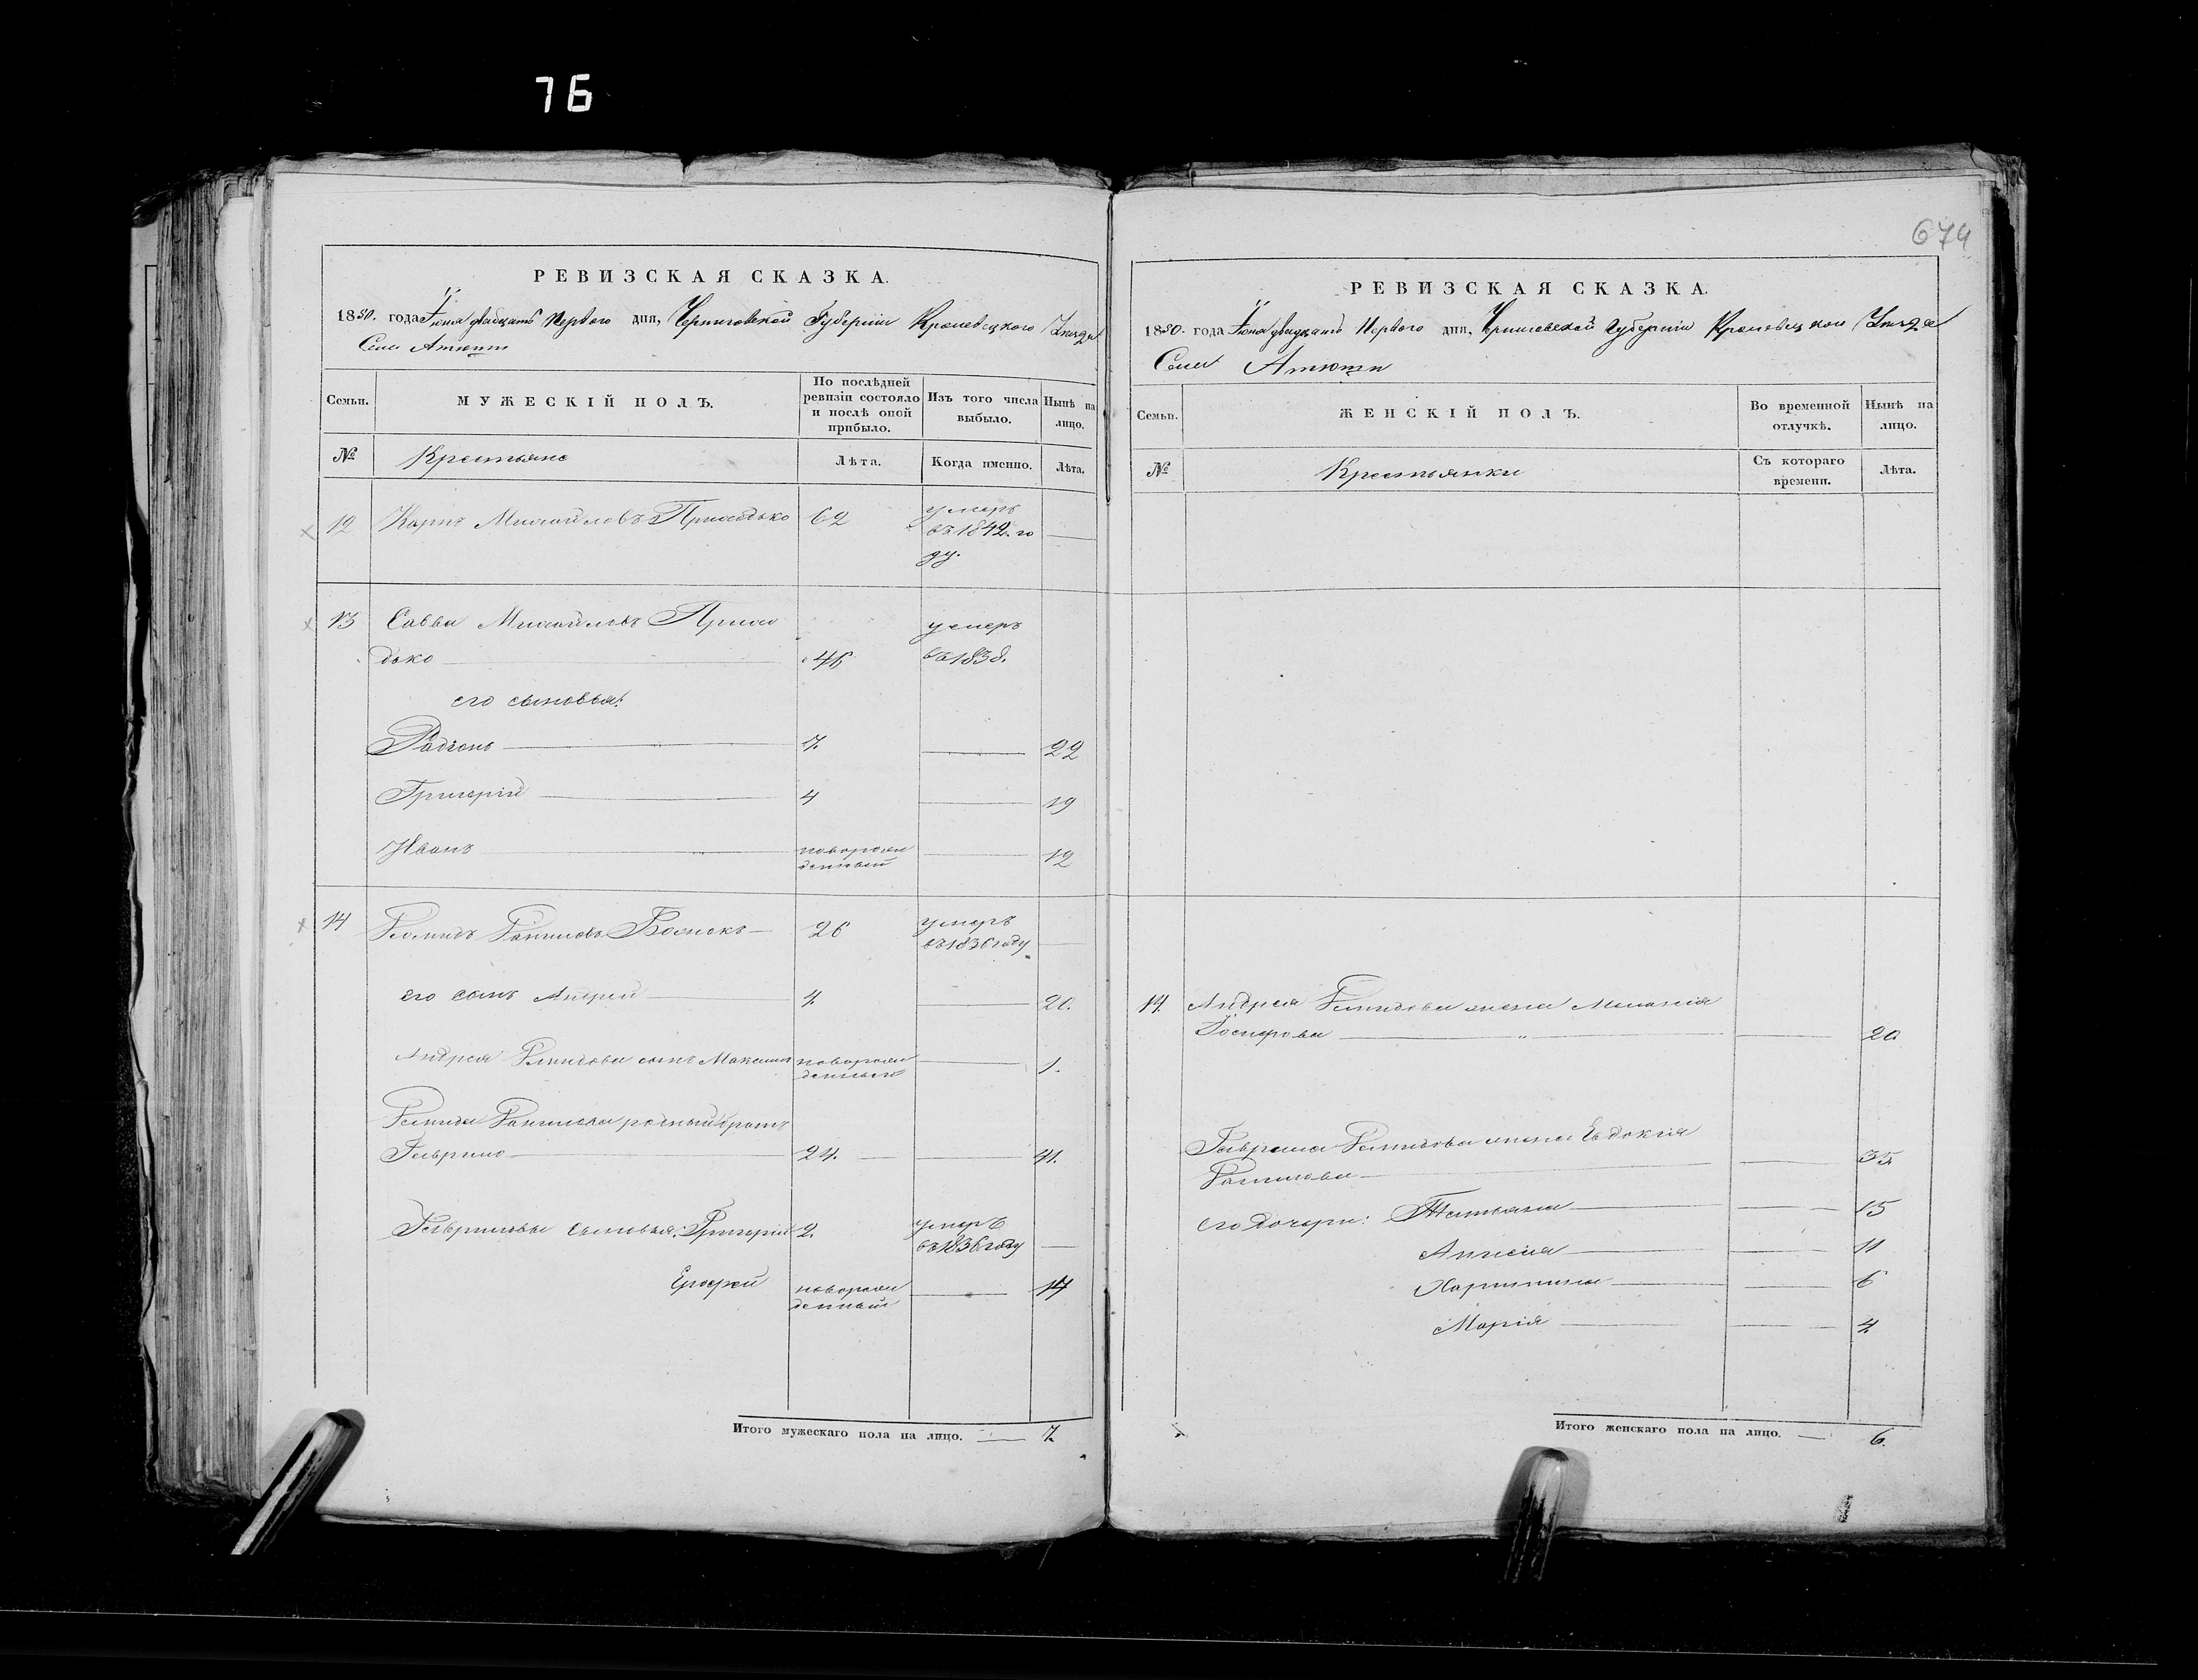 76
674
РЕВИЗСКАЯ СКАЗКА.
1850. года Іюня двадцать Первого дня, Черниговской Губерніи Кролевецкого Уѣзда
Села Атюши
Семьи.
МУЖЕСКІЙ ПОЛЪ.
По послѣдней ревизіи состояло и послѣ оной прибыло.
Изъ того числа выбыло.
Нынѣ на лицо.
№
Крестьяне
Лѣта.
Когда именно.
Лѣта.
12 Карпъ Михайловъ Приходько 62 умеръ
въ 1842. го
ду.
13 Савва Михайловъ Прихо умеръ
дько 46 въ 1838.
его сыновья:
Радіонъ 7. 22
Григорій 4 19
Иванъ новорож 12
денный
14 26 умеръ
въ 1836 году
его сынъ Андрей 4. 20.
Андрея сынъ Максимъ новорож 1.
денный
родный братъ
Гаврило 24. 41.
Гавриловы сыновья: Григорій 2. умеръ
въ 1836 году
Ерофей новорож 14
денный
Итого мужескаго пола на лицо. 7.
РЕВИЗСКАЯ СКАЗКА.
1850. года Іюня двадцать Первого дня, Черниговской Губерніи Кролевецкого Уѣзда
Села Атюши
Семьи.
ЖЕНСКІЙ ПОЛЪ.
Во временной отлучкѣ.
Нынѣ на лицо.
№
Крестьянки
Съ котораго времени.
Лѣта.
14. Андрея жена Меланія
20
Гаврила жена Евдокія
35
его дочери: Татьяна 15
11
Харитина 6
Марія 4
Итого женскаго пола на лицо. 6.